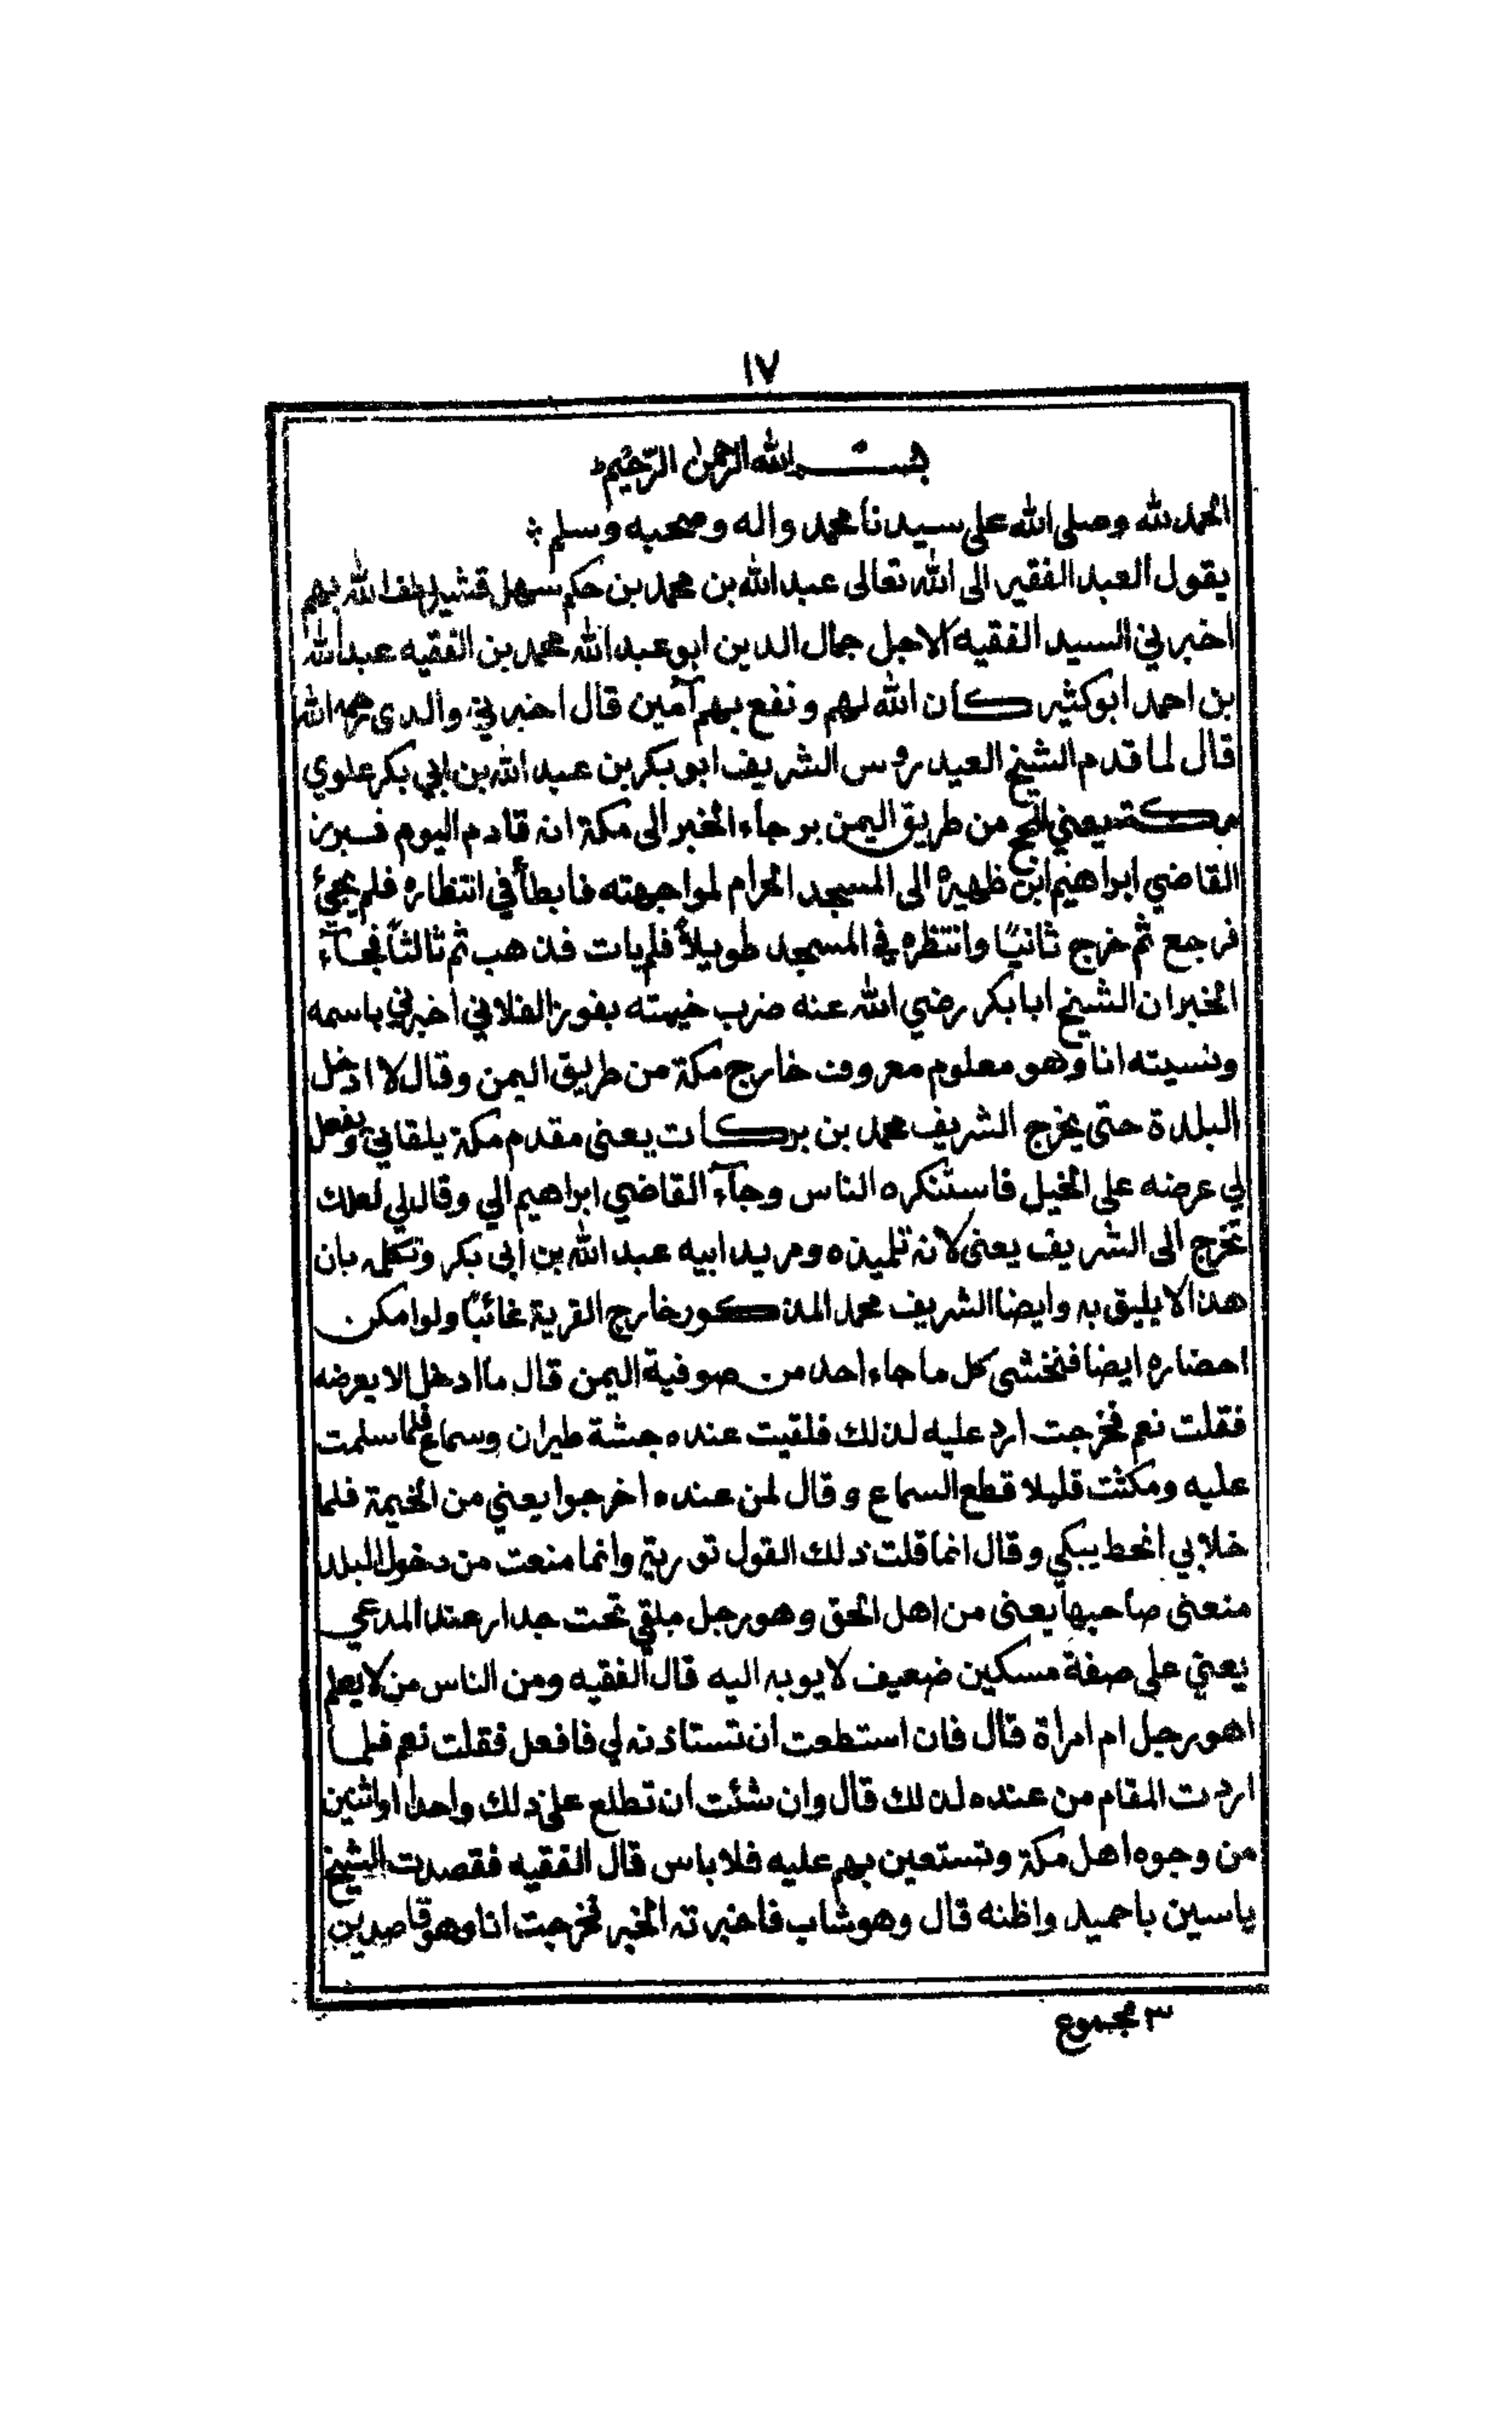 ١٧
بسم الله الرحمن الرحيم
الحمد لله وصلى الله على سيدنا محمد واله وصحبه وسلم
يقول العبد الفقير الى الله تعالى عبد الله بن محمد بن حكم سهل قشير لطف الله بهم
اخبرني السيد الفقيه الاجل جمال الدين ابو عبد الله محمد بن الفقيه عبد الله
بن احمد ابو كثير كان الله لهم ونفع بهم آمين قال اخبرني والدي رحمه الله
قال لما قدم الشيخ العيدروس الشريف ابو بكر بن عبد الله بن ابي بكر علوي
مكة يعني الحج من طريق اليمن بر جاء الخبر الى مكة انه قادم اليوم فبرز
القاضي ابراهيم ابن ظهيرة الى المسجد الحرام لمواجهته فابطأ في انتظاره فلم يجئ
فرجع ثم خرج ثانيًا وانتظره في المسجد طويلاً فلم يات فذهب ثم ثالثاً فجآء
الخبر ان الشيخ ابا بكر رضي الله عنه ضرب خيمته بفوز الفلاني اخبرني باسمه
ونسيته انا وهو معلوم معروف خارج مكة من طريق اليمن وقال لا ادخل
البلدة حتى يخرج الشريف محمد بن بركات يعنى مقدم مكة يلقاني ويفعل
لي عرضه على الخيل فاستنكره الناس وجآء القاضي ابراهيم الي وقال لي لعلك
تخرج الى الشريف يعنى لانه تلميذه ومريد ابيه عبد الله بن ابي بكر وتكلمه بان
هذا لا يليق به وايضا الشريف محمد المذكور خارج القرية غائبًا ولو امكن
احضاره ايضا فنخشى كل ما جاء احد من صوفية اليمن قال ما ادخل الا بعرضه
فقلت نعم فخرجت ارد عليه لذلك فلقيت عنده جشة طيران وسماع فلما سلمت
عليه ومكثت قليلا قطع السماع وقال لمن عنده اخرجوا يعني من الخيمة فلما
خلا بي انحط يبكي وقال انما قلت ذلك القول تورية وانما منعت من دخول البلد
منعنى صاحبها يعنى من اهل الحق وهو رجل ملقي تحت جدار عند المدعي
يعني على صفة مسكين ضعيف لا يوبه اليه قال الفقيه ومن الناس من لا يعلم
اهو رجل ام امراة قال فان استطعت ان تستاذنه لي فافعل فقلت نعم فلما
اردت المقام من عنده لذلك قال وان شئت ان تطلع على ذلك واحدا او اثنين
من وجوه اهل مكة وتستعين بهم عليه فلا باس قال الفقيه فقصدت الشيخ
ياسين باحميد واظنه قال وهو شاب فاخبرته الخبر فخرجت انا وهو قاصدين
٣ مجموع